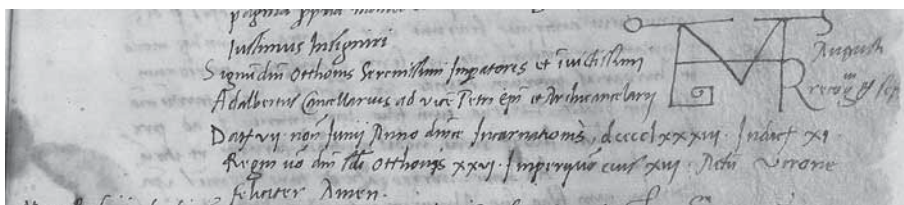 Iussimus Insigniri
Signu dni Otthonis Serenissimi Imperatoris et invictissimi Augusti
Adalbertus Cancellarius ad vice Petri Epi et Archicancelarii
Dat vii non Iunii Anno dnice Incarnationis, dcccclxxxiii. Indict XI.
Regni vo dni Otthonis xxvi. Imperii quo eius xvi. Actu Verone
feliciter Amen.